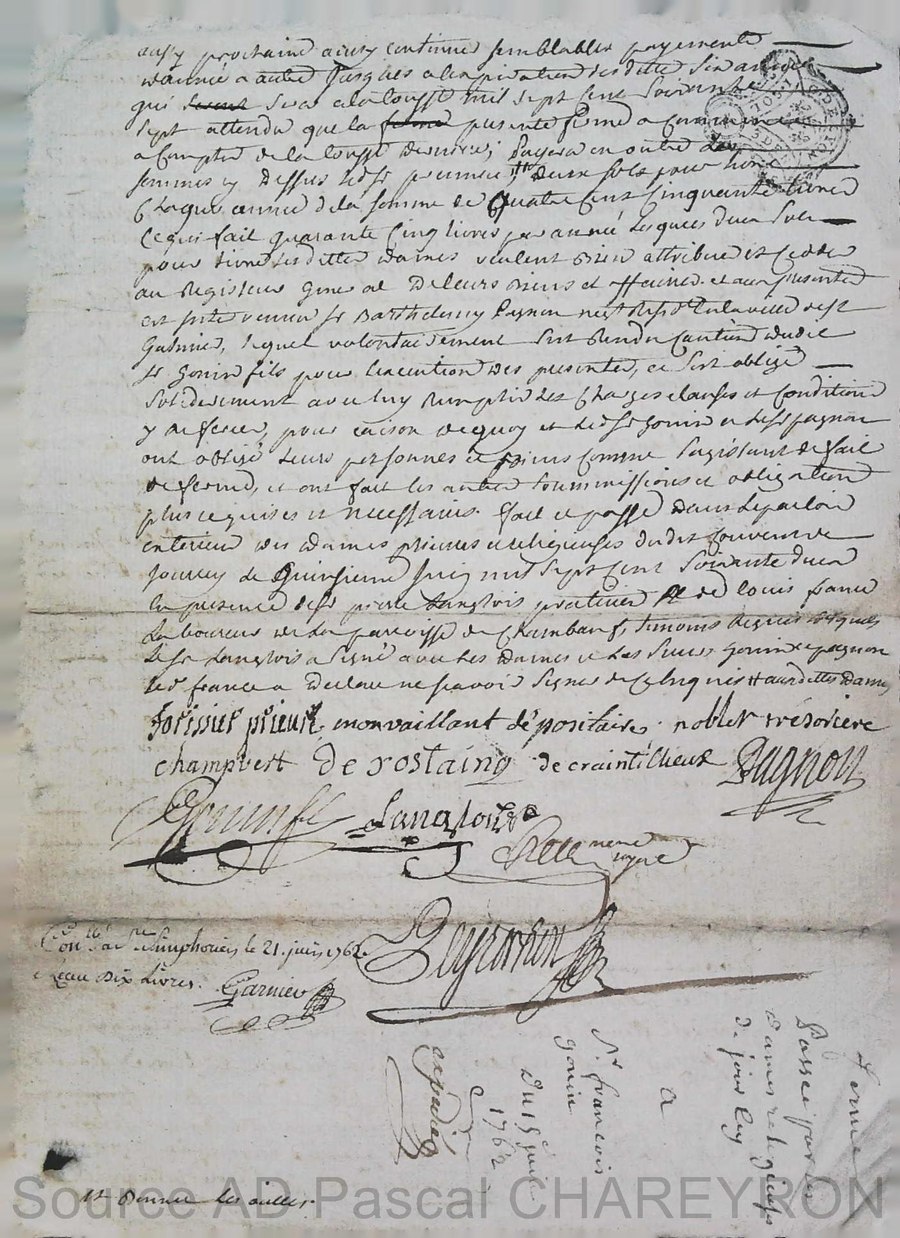 prochaine ainsy continuer semblables payements
d'année a autre jusques a lexpiration desditte six années
qui sera a la tousst mil sept cent soixante
sept attendu que la presente ferme a commencé
a compter de la tousst derniere; payera en outre des
sommes cy dessus ledt sr preneur, deux sols pour livre
chaque année de la somme de quatre cent cinquante livres
ce qui fait quarante cinq livres par année lesques deux sols
pour livre lesdittes dames veulent bien attribuer et ceder
au Regisseur general de leurs biens et affaires et aux presentes
est intervenu sr Barthelemy pagnon en la ville de st
Galmier, lequel volontairement sest rendu caution dudit
sr Gonin fils pour lexecution des presentes, et sest obligé
solidairement avec luy remplir les charges clauses et conditions
y, pour raison de quoy et ledt sr gonin et led sr pagnon
ont obligé leurs personnes et biens comme sagissant de fait
de ferme, et ont fait les autres soummissions et obligations
plus requises et necessaires. fait et passé dans le parloir
exterieur des dames prieure et religieuses dudit couvent de
jourcey le quinzieme juin mil sept cent soixante deux
en presence de sr pierre Langlois praticien et de louis france
laboureur de la paroisse de chambœuf, temoins requis lesquels
led sr Langlois a signé avec les dames et les sieurs gonin et pagnon
led france a declaré ne savoir signer de ce enquis
forissier prieure, monvaillant dépositaire. noblet trésoriere
champvert de rostaing de craintilieux Pagnon
Gonin fils Langlois
notaire
royal
Peyrachon
Con St Simphorien le 21. juin 1762.
Reçu dix livres. Garnier
ferme
Passée par les
dames religieuses
de jourcey
a
Sr francois
gonin
Du 15 juin
1762
expedié
Source AD Pascal CHAREYRON